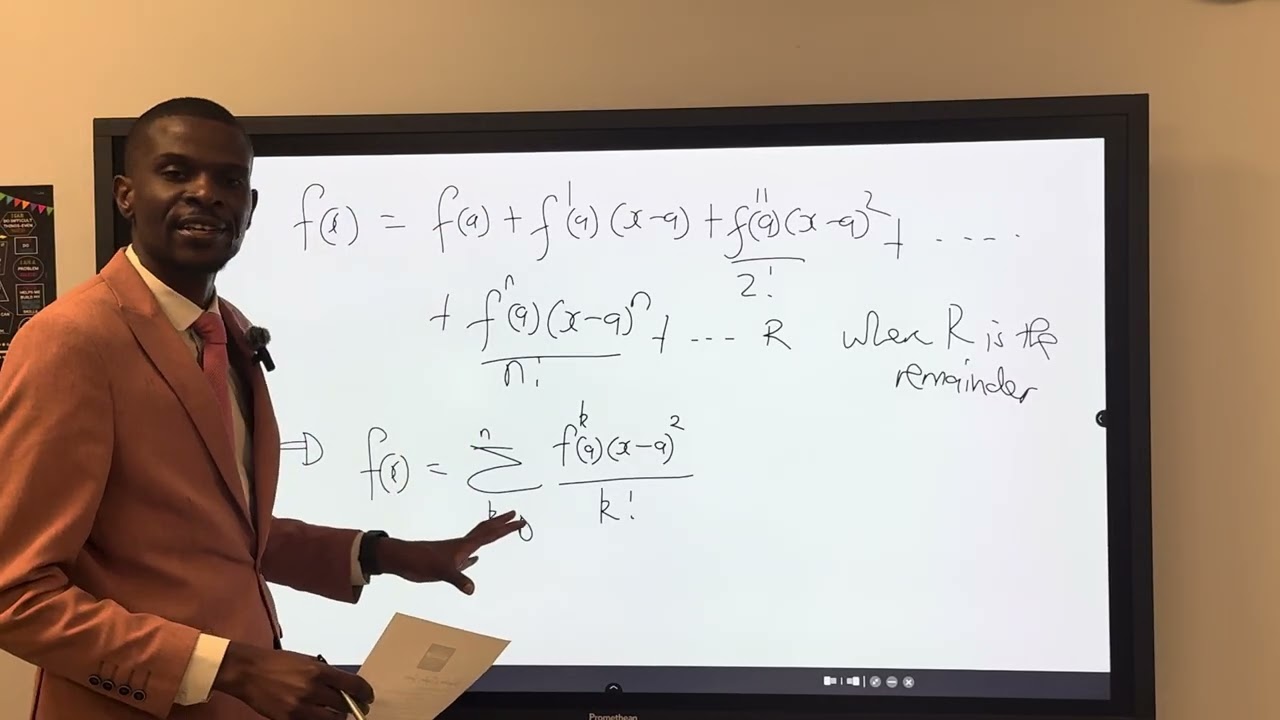 f(x) = f(a) + f'(a)(x-a) + f''(a)(x-a)²/2! + .....
+ fⁿ(a)(x-a)ⁿ/n! + .... R when R is the
remainder
⇒ f(x) = Σⁿ k=0 fᵏ(a)(x-a)²/k!
Promethean
I AM A
PROBLEM